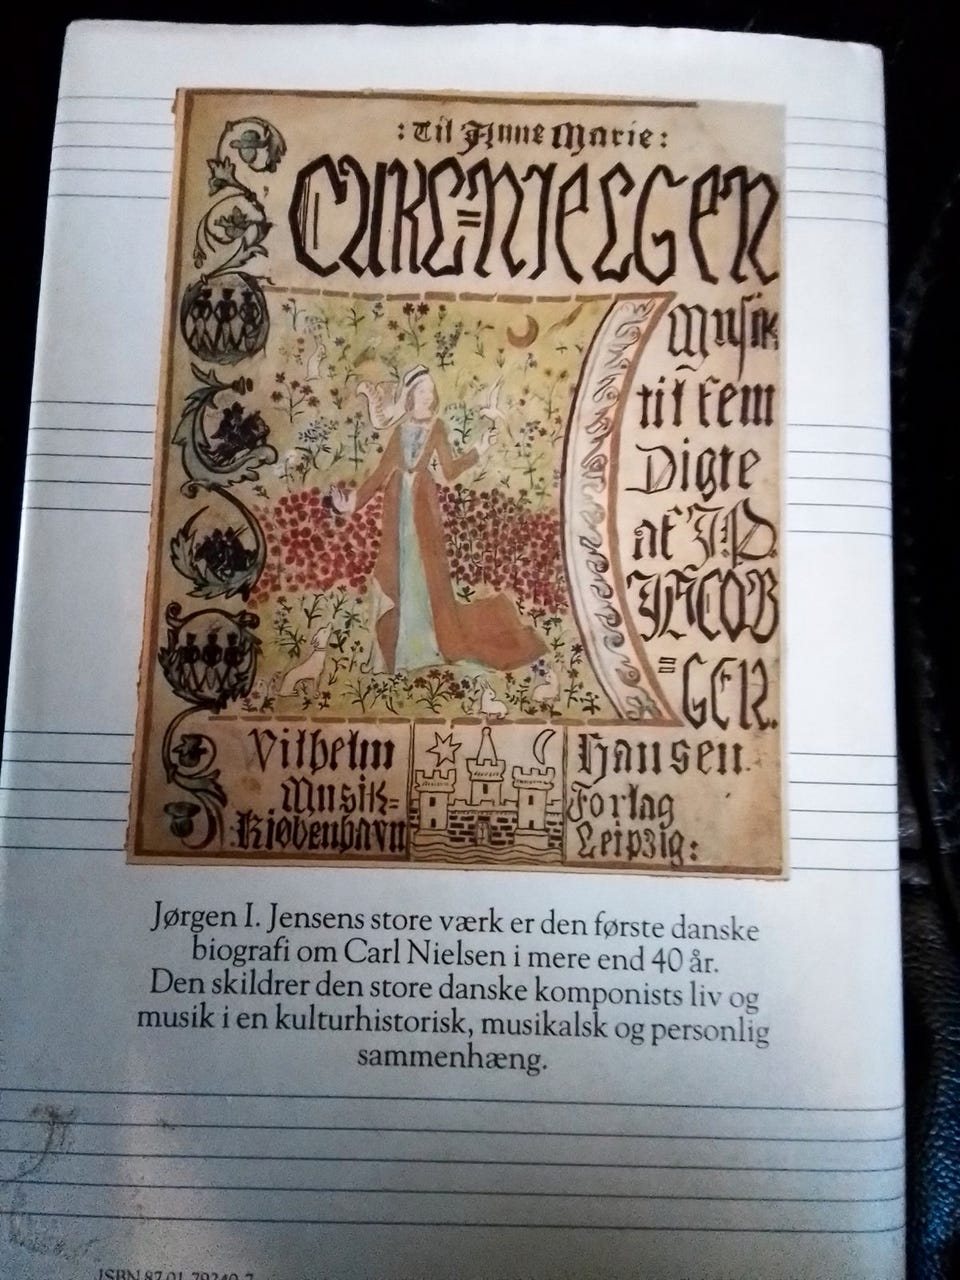 :Til Anne Marie:
CARL=NIELSEN
Musik
til fem
Digte
af J.P.
JACOB
=SEN.
Vilhelm Hansen
Musik= Forlag
Kjøbenhavn Leipzig:
Jørgen I. Jensens store værk er den første danske
biografi om Carl Nielsen i mere end 40 år.
Den skildrer den store danske komponists liv og
musik i en kulturhistorisk, musikalsk og personlig
sammenhæng.
ISBN 87 01 79240 7